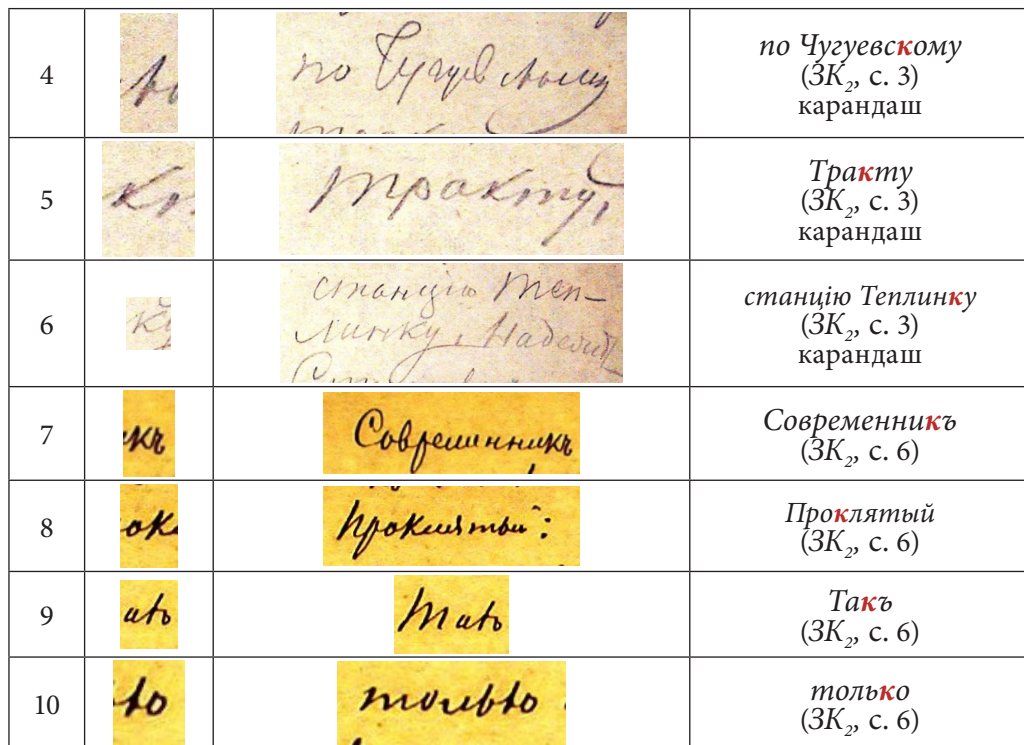 4
по Чугуевскому
по Чугуевскому
(ЗК₂, с. 3)
карандаш
5
тракту,
Тракту
(ЗК₂, с. 3)
карандаш
6
ку
станцію Теп-
линку,
станцію Теплинку
(ЗК₂, с. 3)
карандаш
7
къ
Современникъ
Современникъ
(ЗК₂, с. 6)
8
ок
Проклятый:
Проклятый
(ЗК₂, с. 6)
9
акъ
Такъ
Такъ
(ЗК₂, с. 6)
10
ько
только
только
(ЗК₂, с. 6)